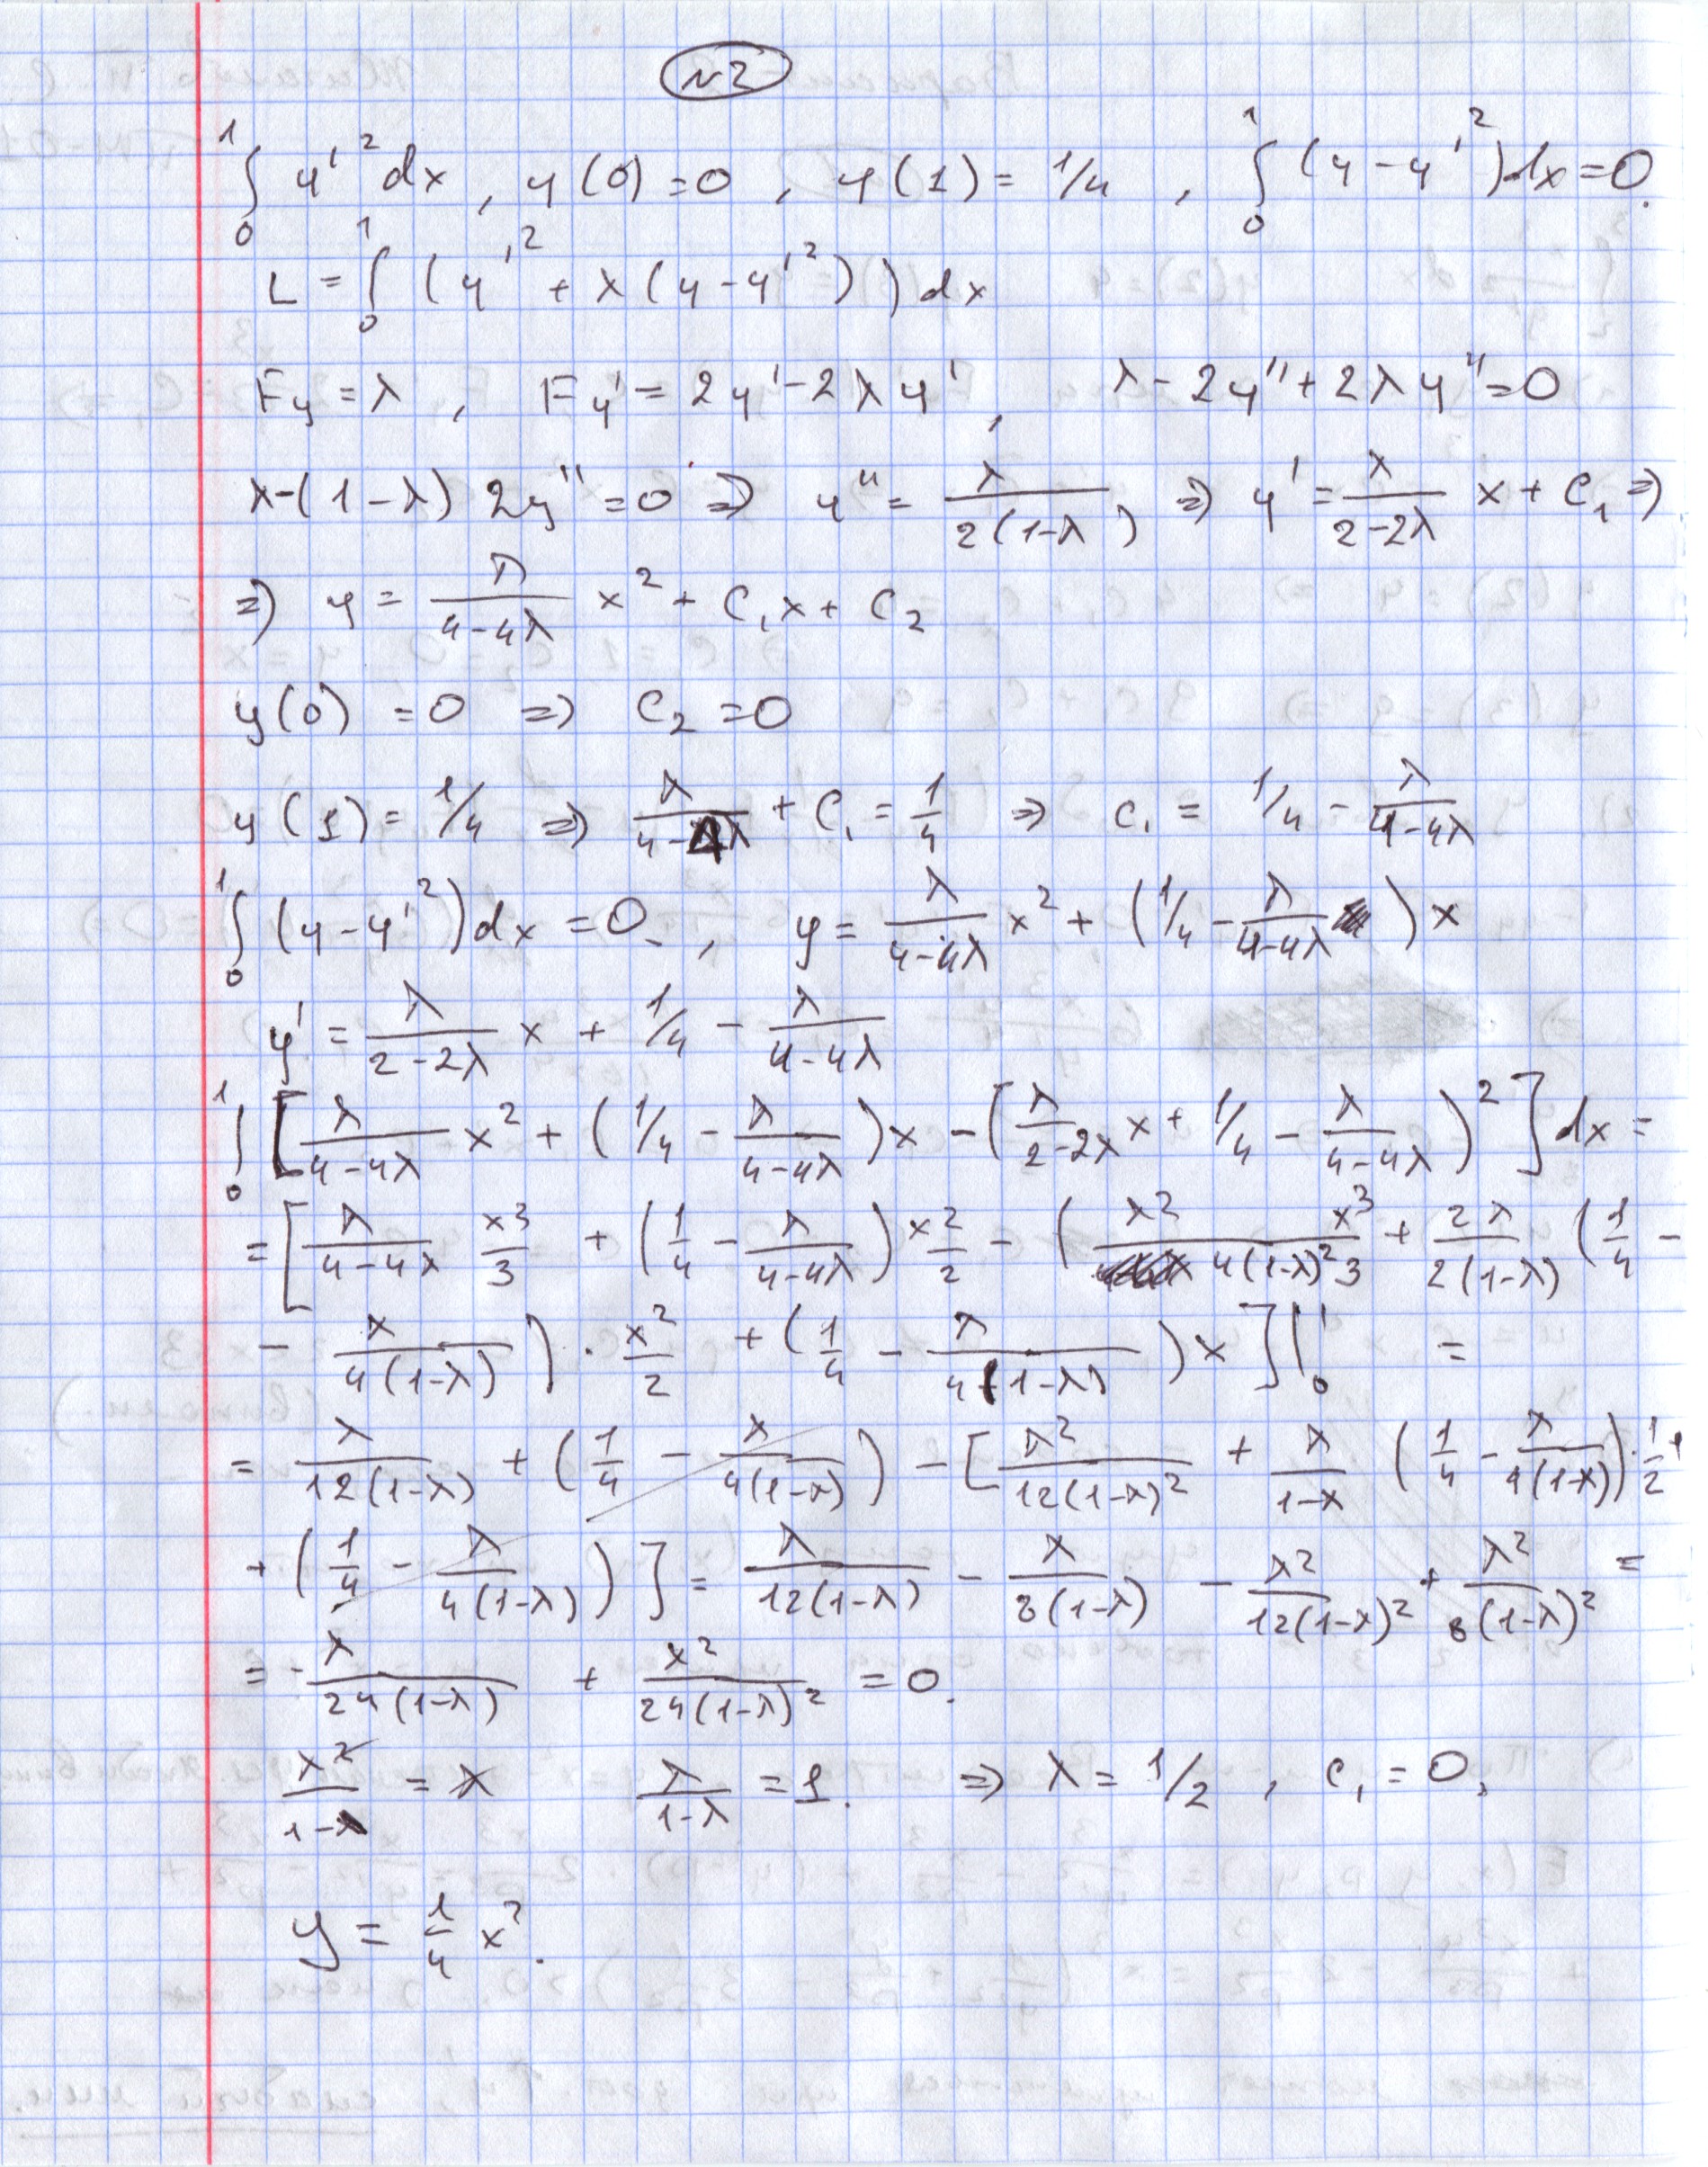 №2
∫₀¹ y'² dx , y(0)=0 , y(1)= 1/4 , ∫₀¹ (y-y'²)dx=0.
L = ∫₀¹ (y'² + λ(y-y'²)) dx
F_y = λ , F_y' = 2y'-2λy' , λ-2y''+2λy''=0
λ-(1-λ) 2y''=0 ⇒ y'' = λ/(2(1-λ)) ⇒ y' = λ/(2-2λ) x + C₁ ⇒
⇒ y = λ/(4-4λ) x² + C₁x + C₂
y(0) =0 ⇒ C₂ =0
y(1)= 1/4 ⇒ λ/(4-4λ) + C₁ = 1/4 ⇒ C₁ = 1/4 - λ/(4-4λ)
∫₀¹ (y-y'²)dx =0 , y = λ/(4-4λ) x² + (1/4 - λ/(4-4λ)) x
y' = λ/(2-2λ) x + 1/4 - λ/(4-4λ)
∫₀¹ [λ/(4-4λ) x² + (1/4 - λ/(4-4λ))x - (λ/(2-2λ) x + 1/4 - λ/(4-4λ))²] dx =
= [λ/(4-4λ) x³/3 + (1/4 - λ/(4-4λ)) x²/2 - (λ²/(4(1-λ)²) x³/3 + 2λ/(2(1-λ)) (1/4 -
- λ/(4(1-λ))) · x²/2 + (1/4 - λ/(4(1-λ)))x]|₀¹ =
= λ/(12(1-λ)) + (1/4 - λ/(4(1-λ))) - [λ²/(12(1-λ)²) + λ/(1-λ) (1/4 - λ/(4(1-λ)))·1/2 +
+ (1/4 - λ/(4(1-λ)))] = λ/(12(1-λ)) - λ/(8(1-λ)) - λ²/(12(1-λ)²) + λ²/(8(1-λ)²) =
= -λ/(24(1-λ)) + λ²/(24(1-λ)²) = 0.
λ²/(1-λ) = λ λ/(1-λ) = 1. ⇒ λ = 1/2 , C₁ = 0,
y = 1/4 x².